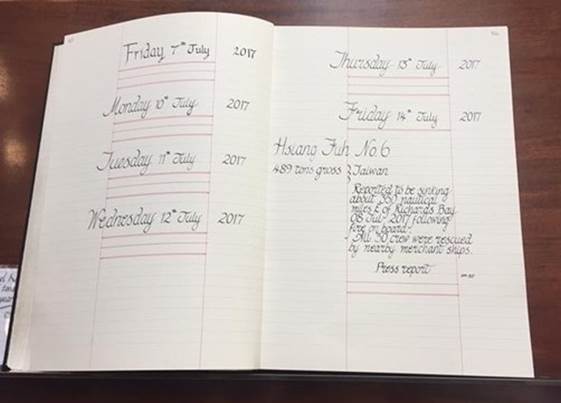 Friday 7th July 2017
Monday 10th July 2017
Tuesday 11th July 2017
Wednesday 12th July 2017
Thursday 13th July 2017
Friday 14th July 2017
Hsiang Fuh No. 6
489 tons gross } Taiwan
Reported to be sinking
about 330 nautical
miles E of Richards Bay
08 July 2017 following
fire on board.
All 30 crew were rescued
by nearby merchant ships.
Press report